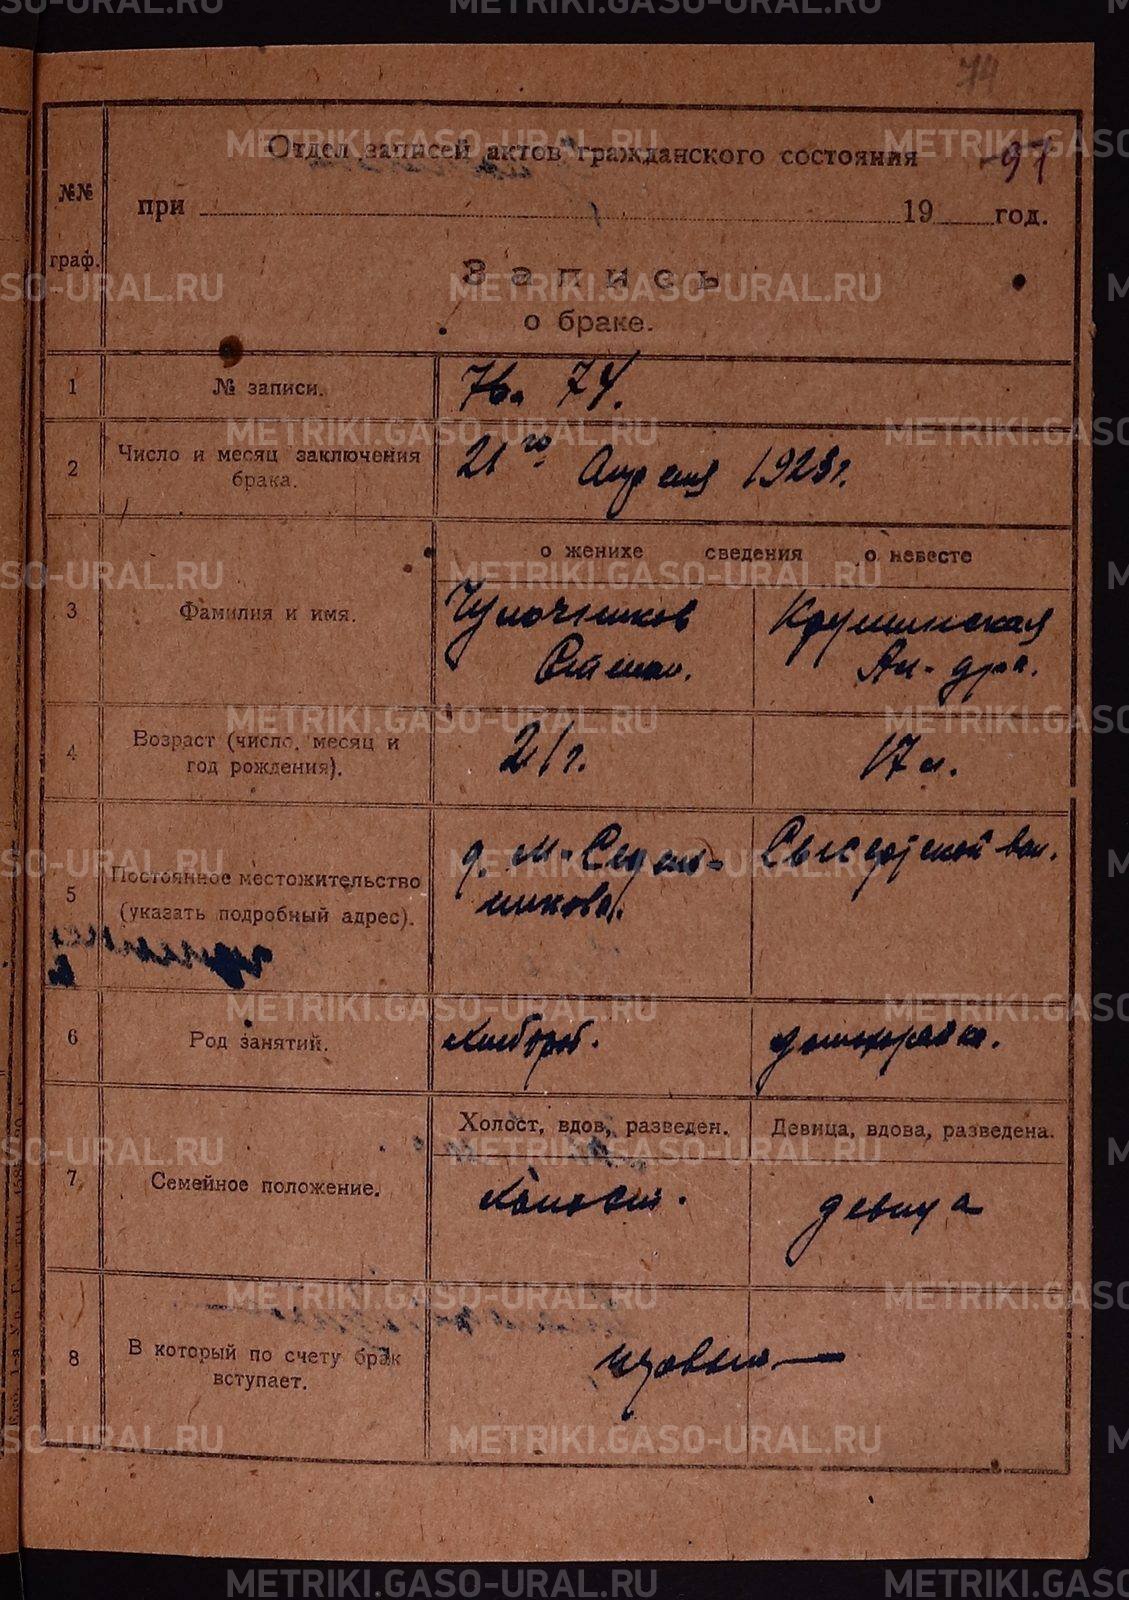 74
Отдел записей актов гражданского состояния
97
№№
граф.
при 19 год.
Запись
о браке.
1 № записи. 76. 74.
2 Число и месяц заключения
брака.
21го Апреля 1923 г.
о женихе сведения о невесте
3 Фамилия и имя.
Чулочников
Степан.
Крушинская
Ал-дра.
4 Возраст (число, месяц и
год рождения).
21 г.
17 л.
5 Постоянное местожительство
(указать подробный адрес).
д. М-Седель-
никова.
Сысертской вол.
6 Род занятий.
Хлебороб.
домохозяйка.
7 Семейное положение.
Холост, вдов, разведен.
Девица, вдова, разведена.
Холост.
девица
8 В который по счету брак
вступает.
первый —
METRIKI.GASO-URAL.RU